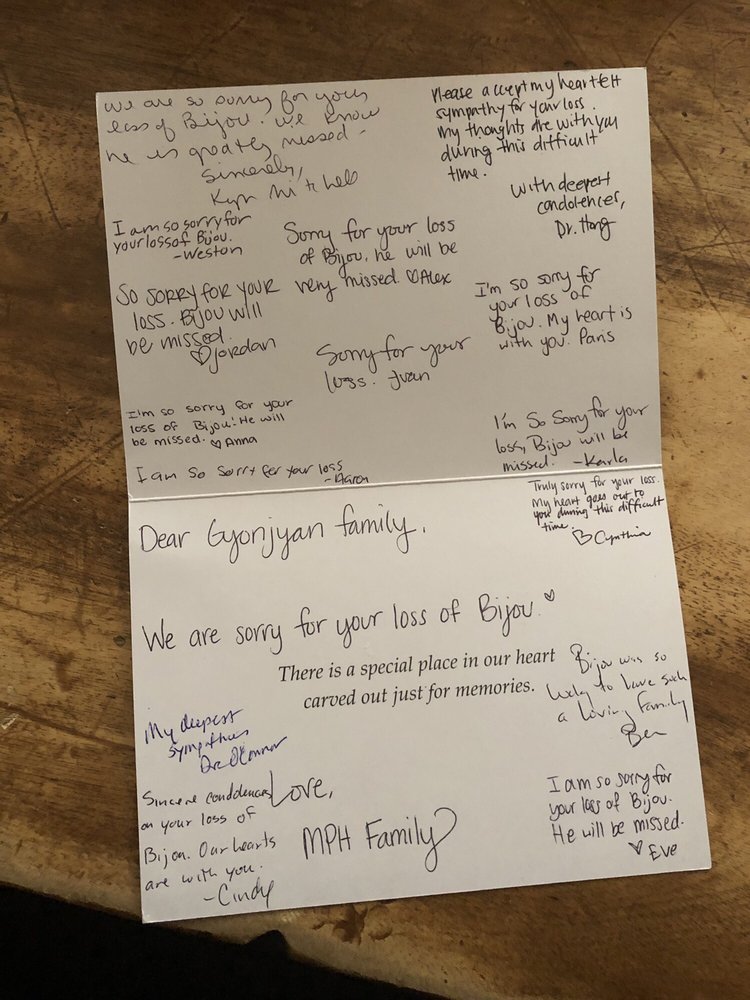 We are so sorry for your
loss of Bijou. We know
he is greatly missed -
Sincerely,
Please accept my heartfelt
sympathy for your loss.
My thoughts are with you
during this difficult
time.
With deepest
condolences,
Dr. Hong
I am so sorry for
your loss of Bijou.
-Weston
Sorry for your loss
of Bijou. He will be
very missed. ♡Alex
So sorry for your
loss. Bijou will
be missed.
♡Jordan
I'm so sorry for
your loss of
Bijou. My heart is
with you. Paris
Sorry for your
loss. Juan
I'm so sorry for your
loss of Bijou! He will
be missed. ♡ Anna
I'm so sorry for your
loss, Bijou will be
missed. -Karla
I am so sorry for your loss
-Aaron
Truly sorry for your loss.
My heart goes out to
you during this difficult
time.
♡Cynthia
Dear Gyonjyan family,
We are sorry for your loss of Bijou.♡
There is a special place in our heart
carved out just for memories.
Bijou was so
lucky to have such
a loving family
Ben
My deepest
sympathies
Dr. O'Connor
Sincere condolences
on your loss of
Bijou. Our hearts
are with you.
-Cindy
Love,
MPH Family
I am so sorry for
your loss of Bijou.
He will be missed.
♡ Eve